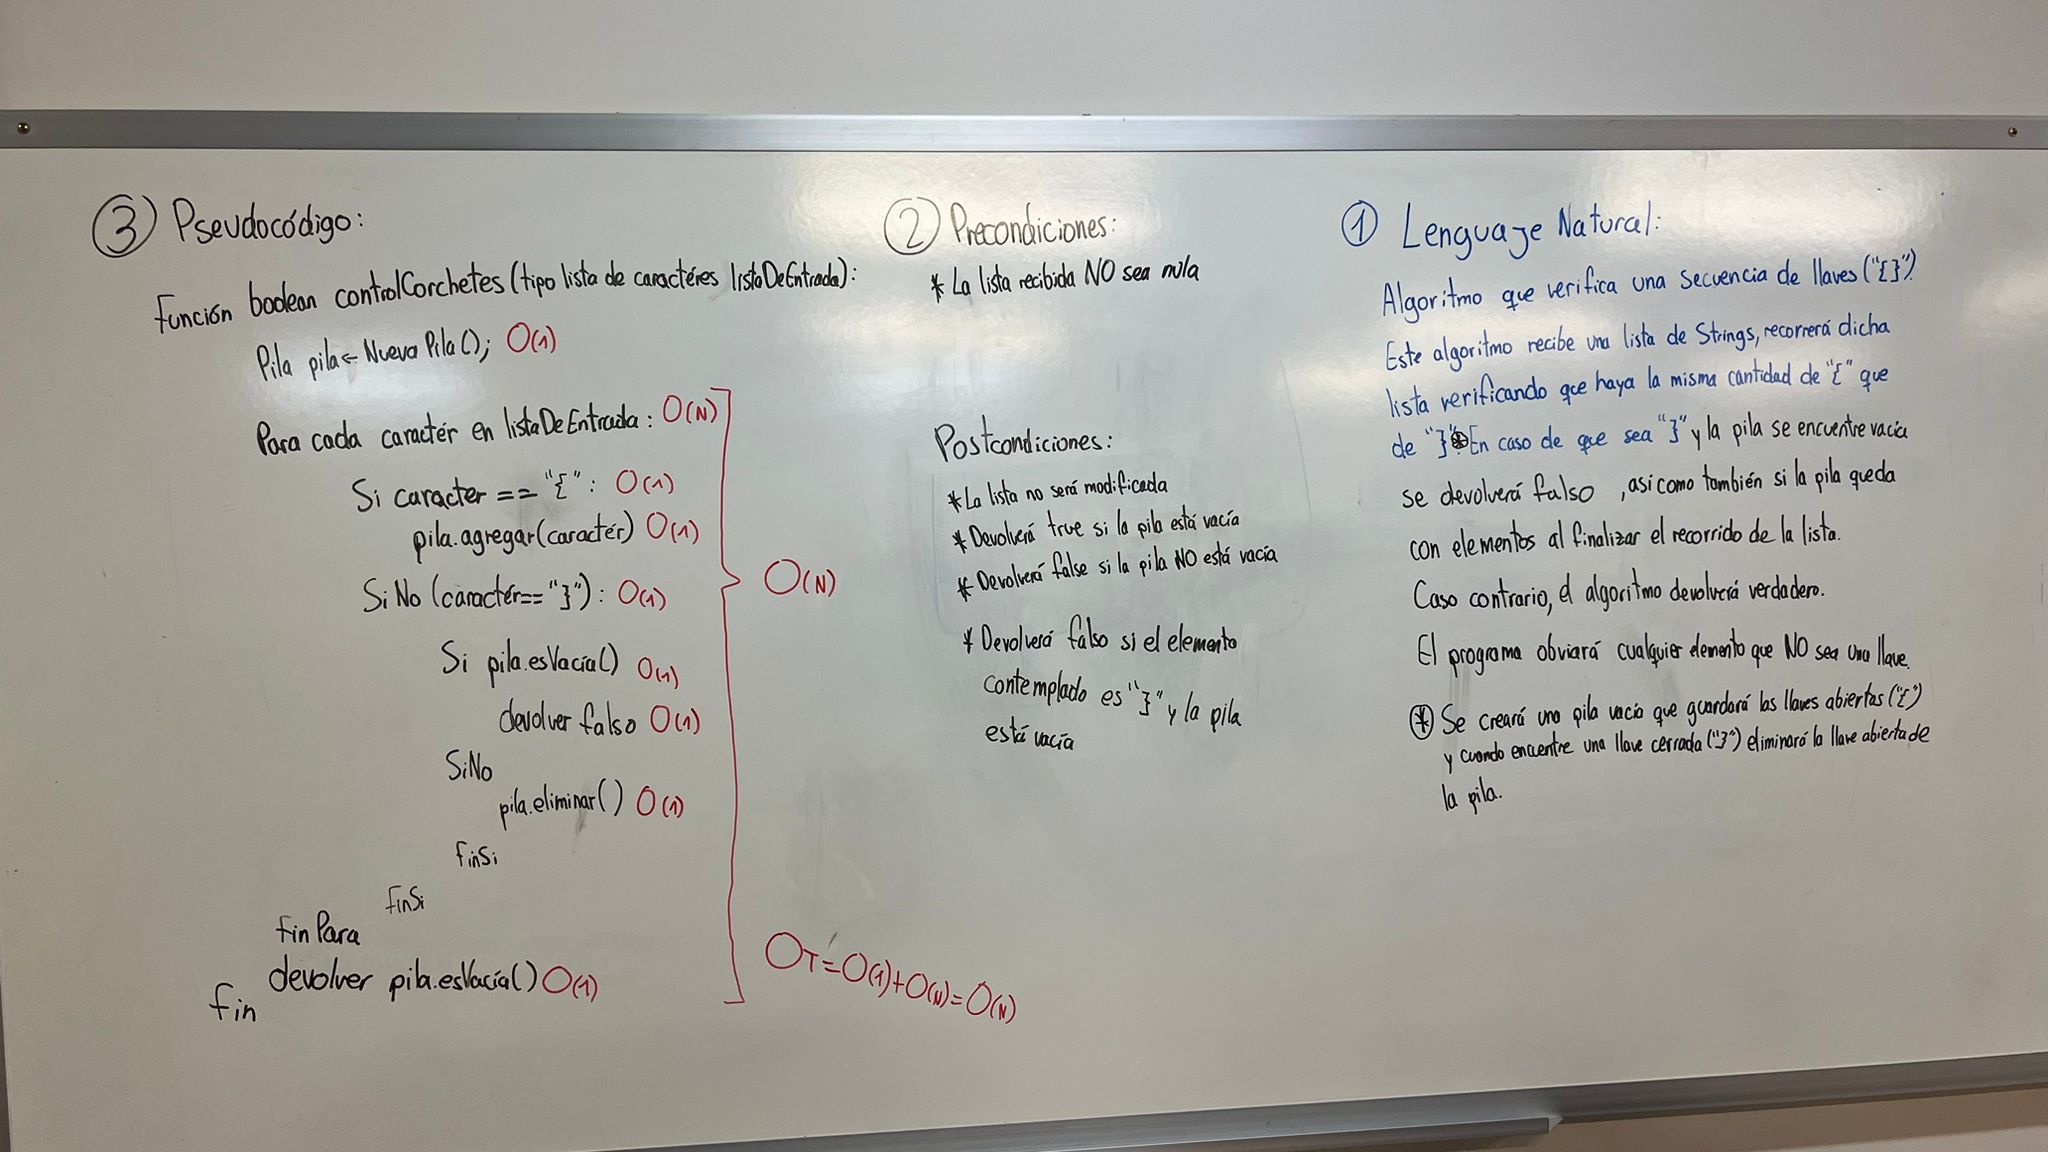 ③ Pseudocódigo:
Función boolean controlCorchetes (tipo lista de caractéres listaDeEntrada):
Pila pila ← Nueva Pila(); O(1)
Para cada caractér en listaDeEntrada: O(N)
Si caracter == "{": O(1)
pila.agregar(caractér) O(1)
SiNo (caractér== "}"): O(1)
Si pila.esVacía() O(1)
devolver falso O(1)
SiNo
pila.eliminar() O(1)
finSi
finSi
fin Para
devolver pila.esVacía() O(1)
fin
O(N)
OT = O(1) + O(N) = O(N)
② Precondiciones:
* La lista recibida NO sea nula
Postcondiciones:
* La lista no será modificada
* Devolverá true si la pila está vacía
* Devolverá false si la pila NO está vacía
* Devolverá falso si el elemento
contemplado es "}" y la pila
está vacía
① Lenguaje Natural:
Algoritmo que verifica una secuencia de llaves ("{}").
Este algoritmo recibe una lista de Strings, recorrerá dicha
lista verificando que haya la misma cantidad de "{" que
de "}". * En caso de que sea "}" y la pila se encuentre vacía
se devolverá falso, asi como también si la pila queda
con elementos al finalizar el recorrido de la lista.
Caso contrario, el algoritmo devolverá verdadero.
El programa obviará cualquier elemento que NO sea una llave.
* Se creará una pila vacía que guardará las llaves abiertas ("{")
y cuando encuentre una llave cerrada ("}") eliminará la llave abierta de
la pila.